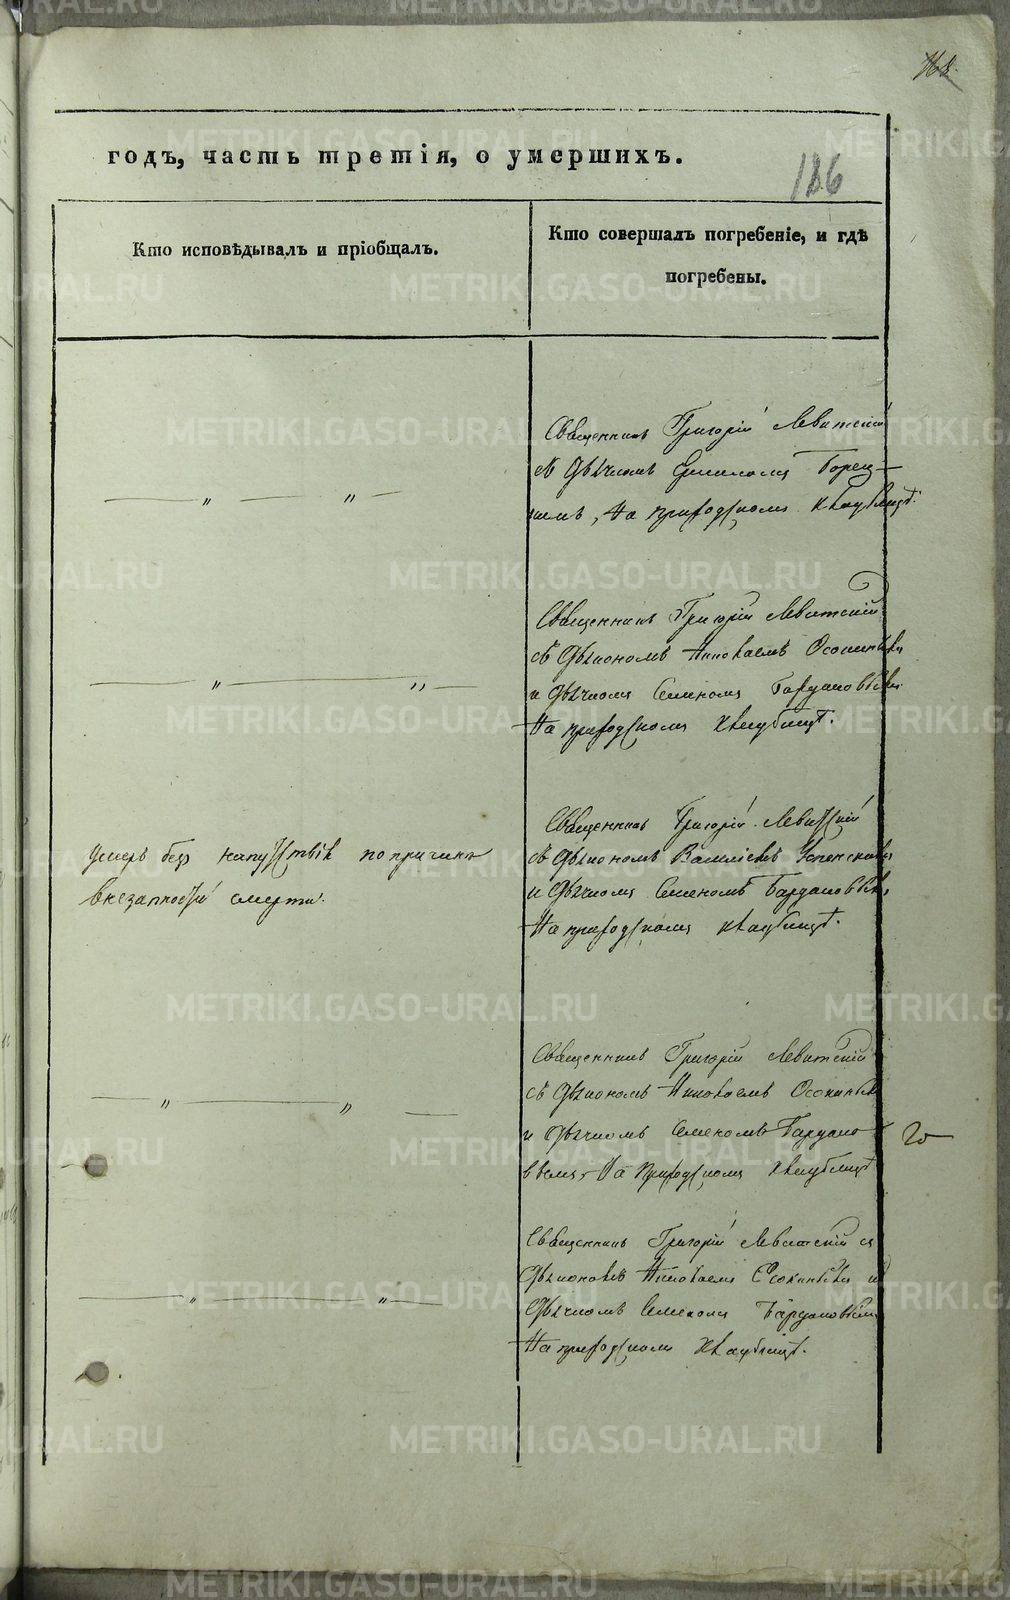 168.
годъ, часть третія, о умершихъ.
186
Кто исповѣдывалъ и пріобщалъ.
Кто совершалъ погребеніе, и гдѣ
погребены.
Священникъ Григорій Левитскій
съ Дьячкомъ
на приходскомъ кладбищѣ.
Священникъ Григорій Левитскій
съ Дьякономъ Николаемъ Осокинымъ
и Дьячкомъ Семеномъ
На приходскомъ кладбищѣ.
умеръ безъ напутствія по причинѣ
внезапной смерти.
Священникъ Григорій Левитскій
съ Дьякономъ Василіемъ Успенскимъ
и Дьячкомъ Семеномъ
На приходскомъ кладбищѣ.
Священникъ Григорій Левитскій
съ Дьякономъ Николаемъ Осокинымъ
и Дьячкомъ Семеномъ
На приходскомъ кладбищѣ
Священникъ Григорій Левитскій съ
Дьякономъ Николаемъ Осокинымъ и
Дьячкомъ Семеномъ
На приходскомъ кладбищѣ.
METRIKI.GASO-URAL.RU